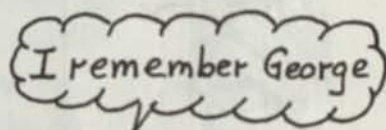 I remember George